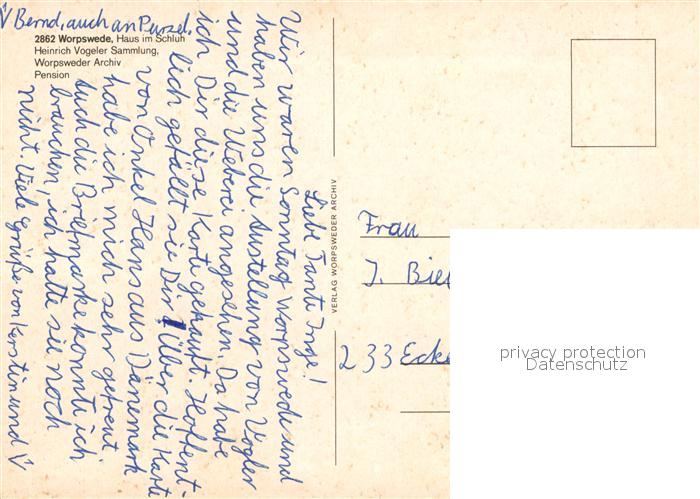 Liebe Tante Inge!
Wir waren Sonntag Worpswede und
haben uns die Austellung von Vogler
und die Weberei angesehen. Da habe
ich Dir diese Karte gekauft. Hoffent-
lich gefällt sie Dir! Über die Karte
von Onkel Hans aus Dänemark
habe ich mich sehr gefreut.
Auch die Briefmarke konnte ich
brauchen, ich hatte sie noch
nicht. Viele Grüße von Kerstin und
Bernd, auch an Purzel.
2862 Worpswede, Haus im Schluh
Heinrich Vogeler Sammlung,
Worpsweder Archiv
Pension
VERLAG WORPSWEDER ARCHIV
Frau
J. Bie
233 Ecke
privacy protection
Datenschutz